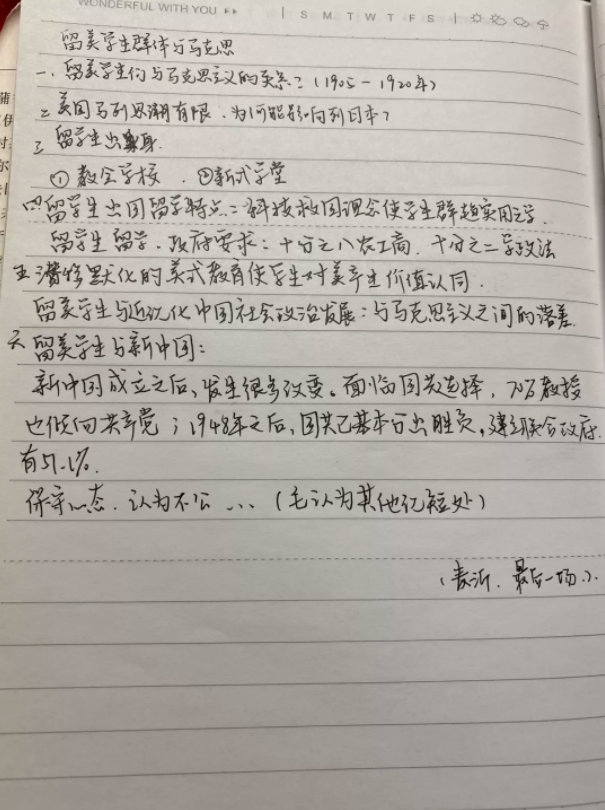 WONDERFUL WITH YOU
S M T W T F S
留美学生群体与马克思
一、留美学生们与马克思主义的关系：（1905－1920年）
二 美国马列思潮有限，为何能影响到日本？
三 留学生出身.
① 教会学校 . ②新式学堂
四 留学生出国留学特点：科技救国理念使学生群趋实用之学.
留学生留学. 政府要求：十分之八农工商. 十分之二学政法
五 潜移默化的美式教育使学生对美产生价值认同.
留美学生与近现代化中国社会政治发展：与马克思主义之间的落差.
六 留美学生与新中国：
新中国成立之后、发生很多改变。面临国共选择，70%教授
也倾向共产党；1948年之后、国共已基本分出胜负，建立联合政府.
有51.1%.
保守心态. 认为不公 ...（毛认为其他 短处）
最后一场.）